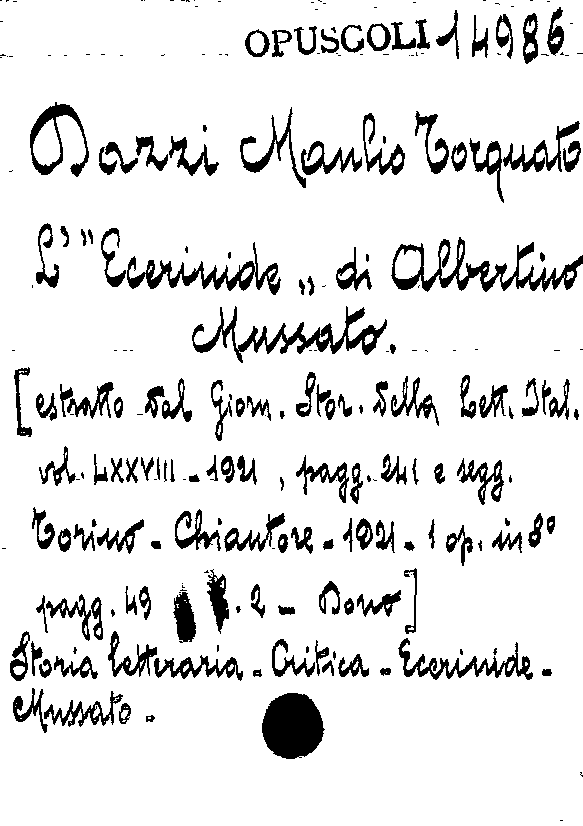 OPUSCOLI 14986
Dazzi Manlio Torquato
L' "Ecerinide„ di Albertino
Mussato.
[estratto dal Giorn. Stor. della Lett. Ital.
vol. LXXVIII - 1921, pagg. 241 e segg.
Torino - Chiantore - 1921 - 1 op. in 8°
pagg. 49 . 2 - Dono]
Storia letteraria - Critica - Ecerinide -
Mussato.